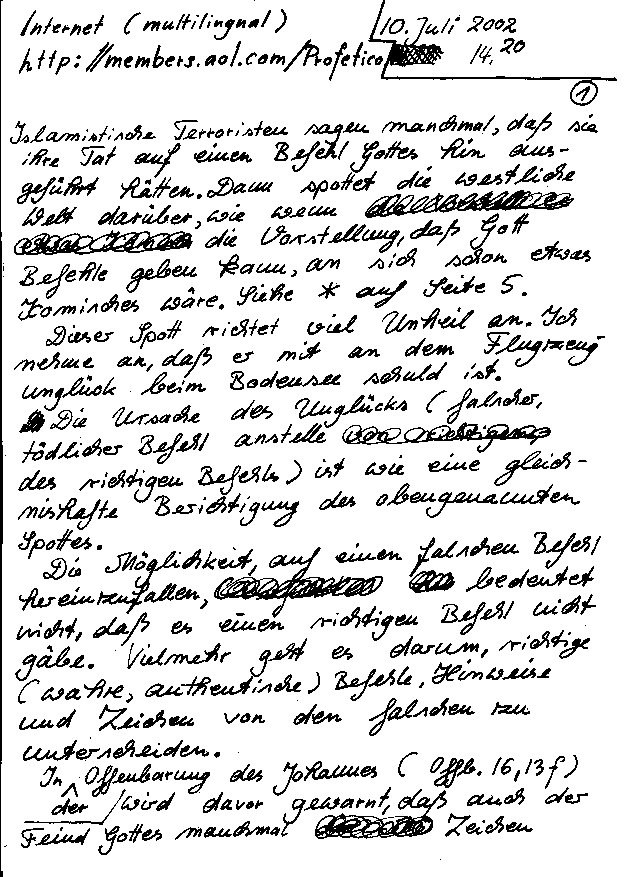 Internet (multilingual)
10. Juli 2002
http://members.aol.com/Profetico/
14.20
1
Islamistische Terroristen sagen manchmal, daß sie
ihre Tat auf einen Befehl Gottes hin aus-
geführt hätten. Dann spottet die westliche
Welt darüber, wie wenn
die Vorstellung, daß Gott
Befehle geben kann, an sich schon etwas
Komisches wäre. Siehe * auf Seite 5.
Dieser Spott richtet viel Unheil an. Ich
nehme an, daß er mit an dem Flugzeug-
unglück beim Bodensee schuld ist.
Die Ursache des Unglücks (falscher,
tödlicher Befehl anstelle
des richtigen Befehls) ist wie eine gleich-
nishafte Berichtigung des obengenannten
Spottes.
Die Möglichkeit, auf einen falschen Befehl
hereinzufallen, bedeutet
nicht, daß es einen richtigen Befehl nicht
gäbe. Vielmehr geht es darum, richtige
(wahre, authentische) Befehle, Hinweise
und Zeichen von den falschen zu
unterscheiden.
In der Offenbarung des Johannes (Offb. 16,13f)
wird davor gewarnt, daß auch der
Feind Gottes manchmal Zeichen